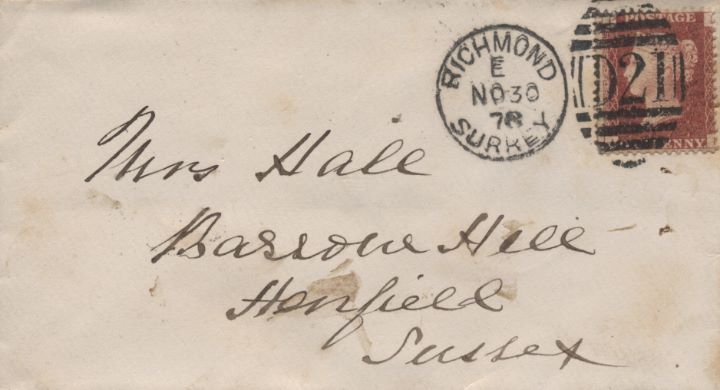 RICHMOND
E
NO 30
78
SURREY
POSTAGE
D21
PENNY
Mrs Hall
Barrow Hill
Henfield
Sussex